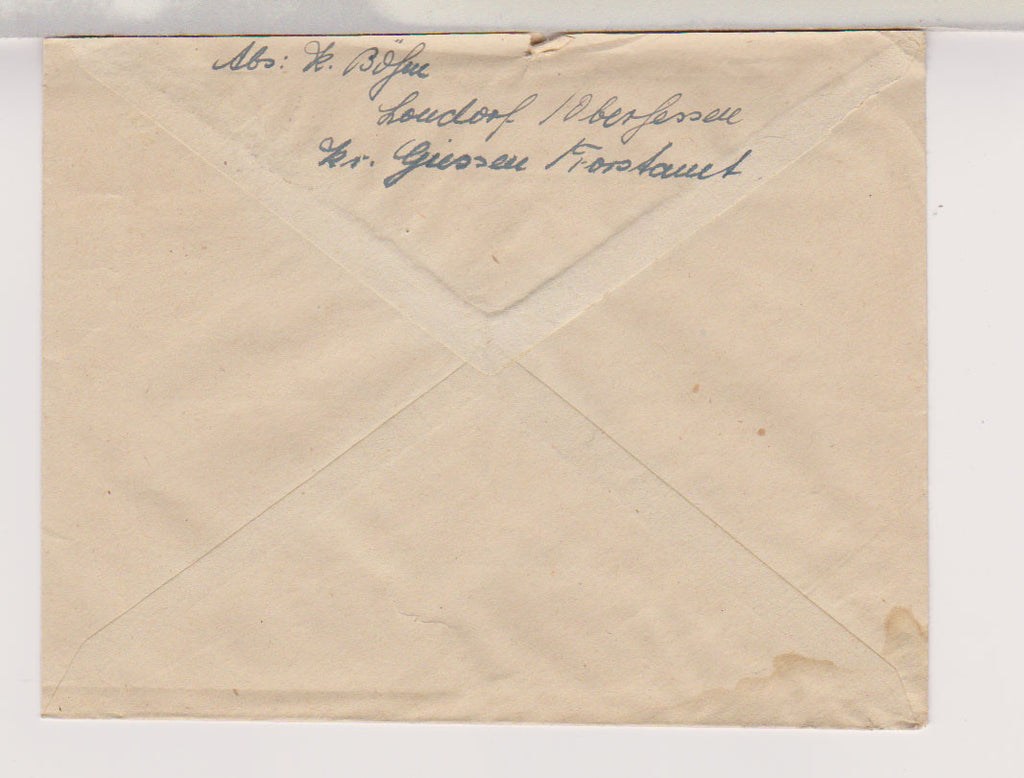 Abs: K. Böhm
Londorf / Oberhessen
Kr. Giessen / Forstamt